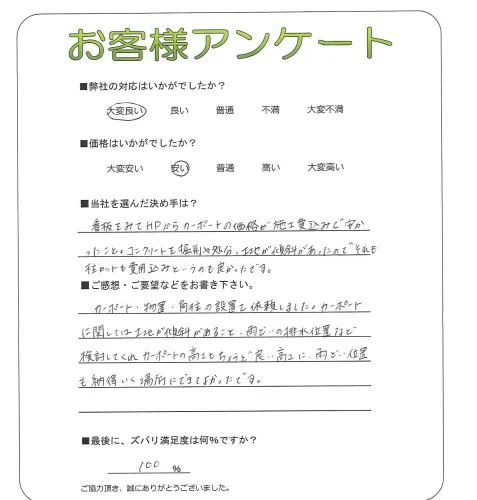 お客様アンケート
■弊社の対応はいかがでしたか？
大変良い 良い 普通 不満 大変不満
■価格はいかがでしたか？
大変安い 安い 普通 高い 大変高い
■当社を選んだ決め手は？
看板をみてHPからカーポートの価格が施工費込みで安か
ったこと。コンクリートを掘削や処分、土地が傾斜があったのでそれも
柱カットも費用込みというのも良かったです。
■ご感想・ご要望などをお書き下さい。
カーポート・物置・角柱の設置を依頼しました。カーポート
に関しては土地が傾斜があること、雨どいの排水位置など
検討してくれカーポートの高さもちょうど良い高さに、雨どい位置
も納得いく場所にできてよかったです。
■最後に、ズバリ満足度は何%ですか？
100 %
ご協力頂き、誠にありがとうございました。